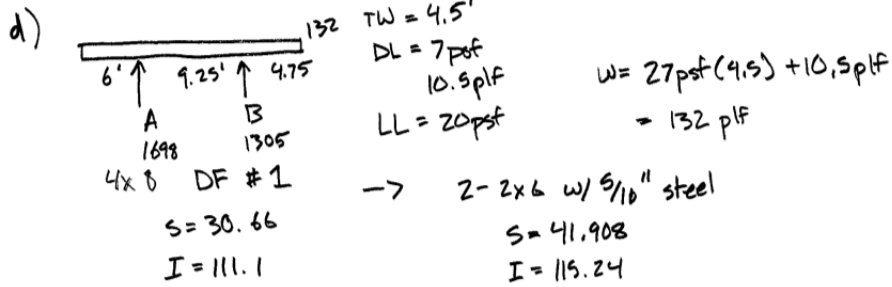 d)
132
6' 9.25' 4.75
A B
1698 1305
4x8 DF #1
S = 30.66
I = 111.1
TW = 4.5'
DL = 7psf
10.5plf
LL = 20psf
W = 27psf(4.5) + 10.5plf
= 132 plf
-> 2-2x6 w/ 5/16" steel
S = 41.908
I = 115.24